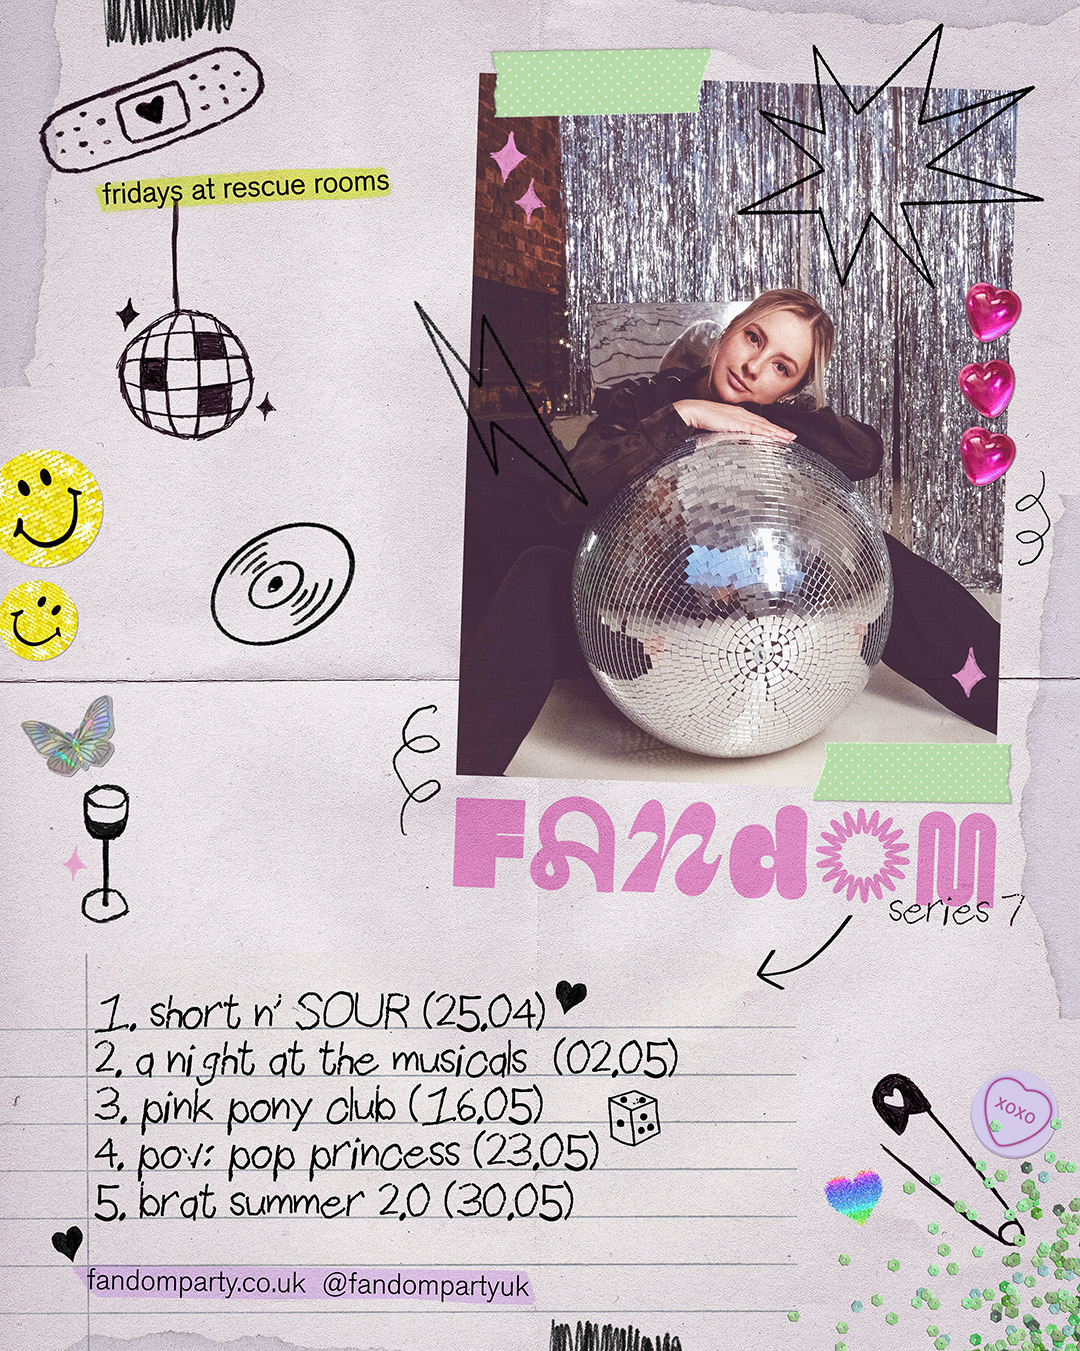 fridays at rescue rooms
FANdOM
series 7
1. short n' SOUR (25.04)
2. a night at the musicals (02.05)
3. pink pony club (16.05)
4. pov: pop princess (23.05)
5. brat summer 2.0 (30.05)
xoxo
fandomparty.co.uk @fandompartyuk